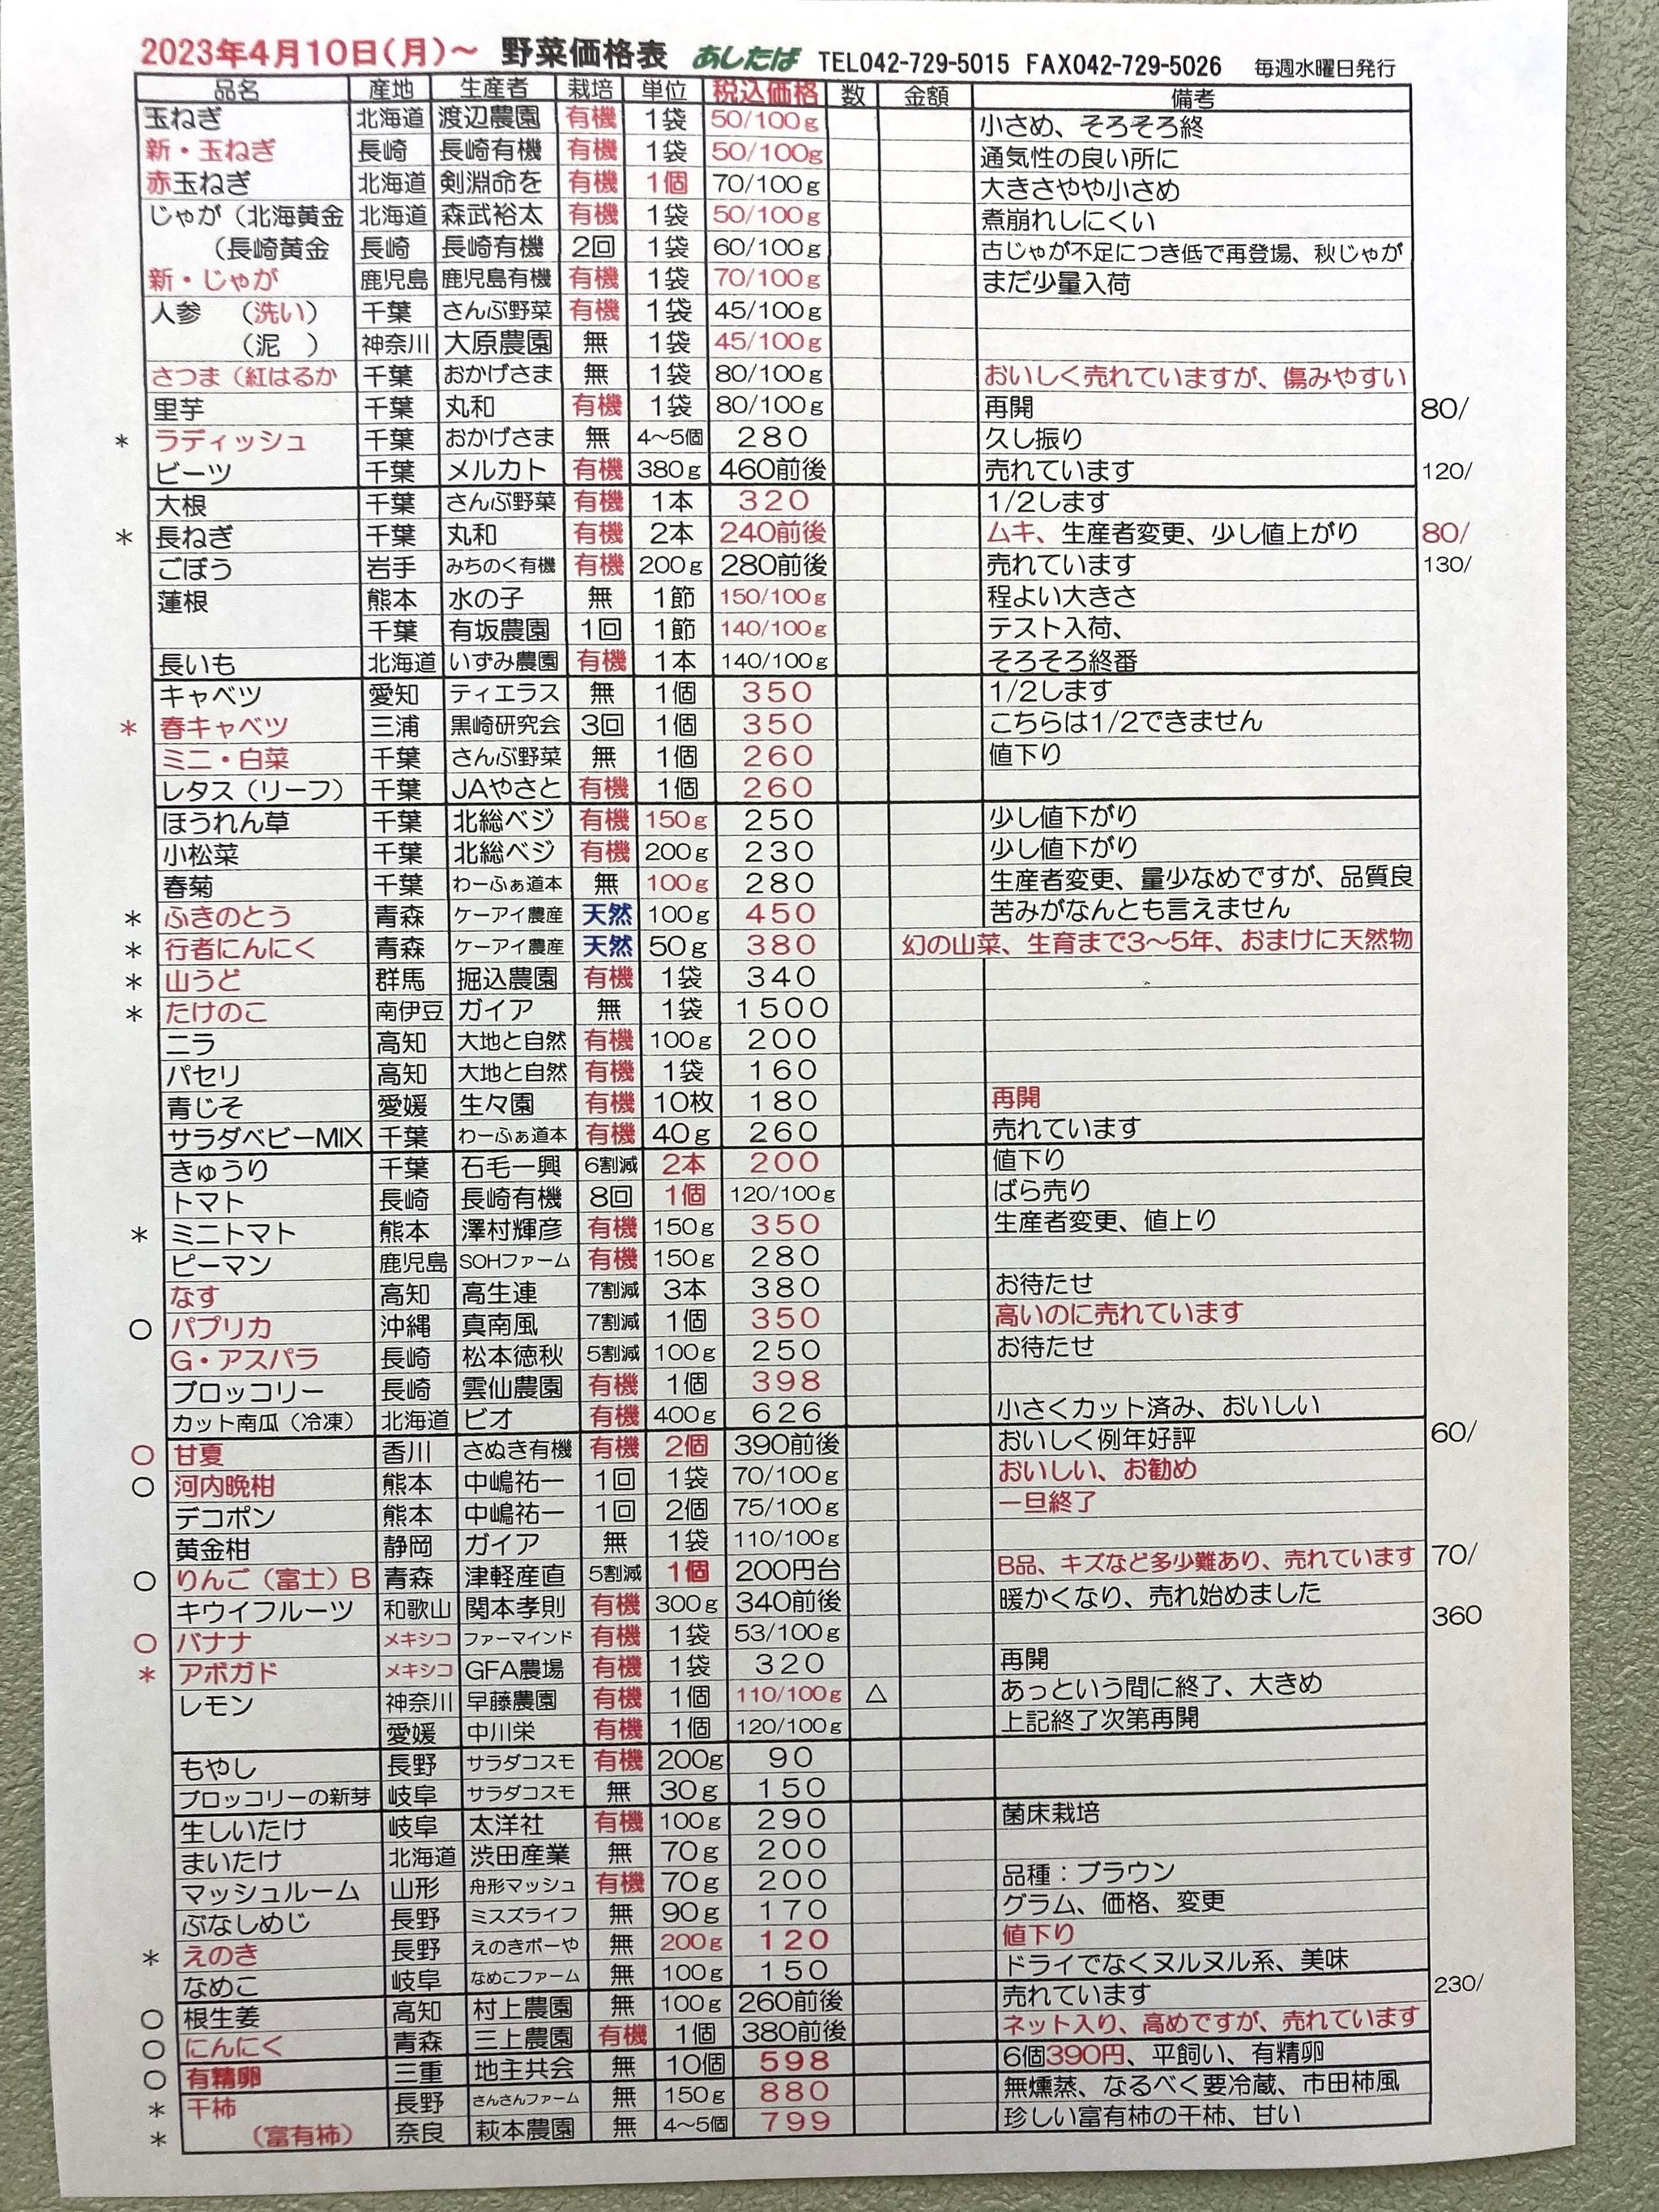 2023年4月10日(月)～ 野菜価格表 あしたば TEL042-729-5015 FAX042-729-5026 毎週水曜日発行
品名 産地 生産者 栽培 単位 税込価格 数 金額 備考
玉ねぎ 北海道 渡辺農園 有機 1袋 50/100g 小さめ、そろそろ終
新・玉ねぎ 長崎 長崎有機 有機 1袋 50/100g 通気性の良い所に
赤玉ねぎ 北海道 剣淵命を 有機 1個 70/100g 大きさやや小さめ
じゃが（北海黄金 北海道 森武裕太 有機 1袋 50/100g 煮崩れしにくい
（長崎黄金 長崎 長崎有機 2回 1袋 60/100g 古じゃが不足につき低で再登場、秋じゃが
新・じゃが 鹿児島 鹿児島有機 有機 1袋 70/100g まだ少量入荷
人参 （洗い） 千葉 さんぶ野菜 有機 1袋 45/100g
（泥 ） 神奈川 大原農園 無 1袋 45/100g
さつま（紅はるか 千葉 おかげさま 無 1袋 80/100g おいしく売れていますが、傷みやすい
里芋 千葉 丸和 有機 1袋 80/100g 再開 80/
* ラディッシュ 千葉 おかげさま 無 4～5個 280 久し振り
ビーツ 千葉 メルカト 有機 380g 460前後 売れています 120/
大根 千葉 さんぶ野菜 有機 1本 320 1/2します
* 長ねぎ 千葉 丸和 有機 2本 240前後 ムキ、生産者変更、少し値上がり 80/
ごぼう 岩手 みちのく有機 有機 200g 280前後 売れています 130/
蓮根 熊本 水の子 無 1節 150/100g 程よい大きさ
千葉 有坂農園 1回 1節 140/100g テスト入荷、
長いも 北海道 いずみ農園 有機 1本 140/100g そろそろ終番
キャベツ 愛知 ティエラス 無 1個 350 1/2します
* 春キャベツ 三浦 黒崎研究会 3回 1個 350 こちらは1/2できません
ミニ・白菜 千葉 さんぶ野菜 無 1個 260 値下り
レタス（リーフ） 千葉 JAやさと 有機 1個 260
ほうれん草 千葉 北総ベジ 有機 150g 250 少し値下がり
小松菜 千葉 北総ベジ 有機 200g 230 少し値下がり
春菊 千葉 わーふぁ道本 無 100g 280 生産者変更、量少なめですが、品質良
* ふきのとう 青森 ケーアイ農産 天然 100g 450 苦みがなんとも言えません
* 行者にんにく 青森 ケーアイ農産 天然 50g 380 幻の山菜、生育まで3～5年、おまけに天然物
* 山うど 群馬 掘込農園 有機 1袋 340
* たけのこ 南伊豆 ガイア 無 1袋 1500
ニラ 高知 大地と自然 有機 100g 200
パセリ 高知 大地と自然 有機 1袋 160
青じそ 愛媛 生々園 有機 10枚 180 再開
サラダベビーMIX 千葉 わーふぁ道本 有機 40g 260 売れています
きゅうり 千葉 石毛一興 6割減 2本 200 値下り
トマト 長崎 長崎有機 8回 1個 120/100g ばら売り
* ミニトマト 熊本 澤村輝彦 有機 150g 350 生産者変更、値上り
ピーマン 鹿児島 SOHファーム 有機 150g 280
なす 高知 高生連 7割減 3本 380 お待たせ
○ パプリカ 沖縄 真南風 7割減 1個 350 高いのに売れています
G・アスパラ 長崎 松本徳秋 5割減 100g 250 お待たせ
ブロッコリー 長崎 雲仙農園 有機 1個 398
カット南瓜（冷凍） 北海道 ビオ 有機 400g 626 小さくカット済み、おいしい
○ 甘夏 香川 さぬき有機 有機 2個 390前後 おいしく例年好評 60/
○ 河内晩柑 熊本 中嶋祐一 1回 1袋 70/100g おいしい、お勧め
デコポン 熊本 中嶋祐一 1回 2個 75/100g 一旦終了
黄金柑 静岡 ガイア 無 1袋 110/100g
○ りんご（富士）B 青森 津軽産直 5割減 1個 200円台 B品、キズなど多少難あり、売れています 70/
キウイフルーツ 和歌山 関本孝則 有機 300g 340前後 暖かくなり、売れ始めました 360
○ バナナ メキシコ ファーマインド 有機 1袋 53/100g
* アボガド メキシコ GFA農場 有機 1袋 320 再開
レモン 神奈川 早藤農園 有機 1個 110/100g △ あっという間に終了、大きめ
愛媛 中川栄 有機 1個 120/100g 上記終了次第再開
もやし 長野 サラダコスモ 有機 200g 90
ブロッコリーの新芽 岐阜 サラダコスモ 無 30g 150
生しいたけ 岐阜 太洋社 有機 100g 290 菌床栽培
まいたけ 北海道 渋田産業 無 70g 200
マッシュルーム 山形 舟形マッシュ 有機 70g 200 品種：ブラウン
ぶなしめじ 長野 ミスズライフ 無 90g 170 グラム、価格、変更
* えのき 長野 えのきボーや 無 200g 120 値下り
なめこ 岐阜 なめこファーム 無 100g 150 ドライでなくヌルヌル系、美味
○ 根生姜 高知 村上農園 無 100g 260前後 売れています 230/
○ にんにく 青森 三上農園 有機 1個 380前後 ネット入り、高めですが、売れています
○ 有精卵 三重 地主共会 無 10個 598 6個390円、平飼い、有精卵
* 干柿 長野 さんさんファーム 無 150g 880 無燻蒸、なるべく要冷蔵、市田柿風
* （富有柿） 奈良 萩本農園 無 4～5個 799 珍しい富有柿の干柿、甘い